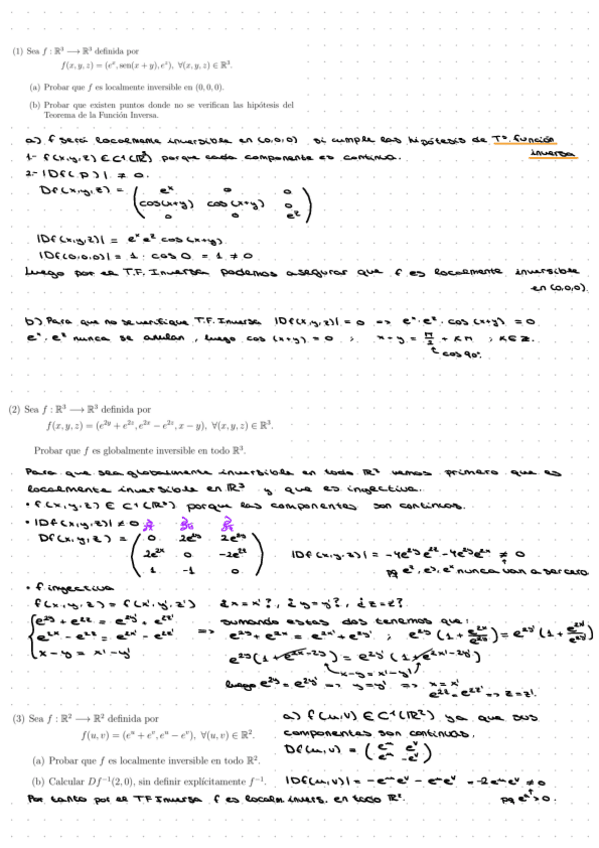 (1) Sea f : ℝ³ ⟶ ℝ³ definida por
f(x, y, z) = (eˣ, sen(x + y), eᶻ), ∀(x, y, z) ∈ ℝ³.
(a) Probar que f es localmente inversible en (0, 0, 0).
(b) Probar que existen puntos donde no se verifican las hipótesis del
Teorema de la Función Inversa.
a) f será localmente inversible en (0,0,0) si cumple las hipótesis de Tª función
inversa
1.- f(x,y,z) ∈ C¹(ℝ³) porque cada componente es continua.
2.- |Df(p)| ≠ 0.
Df(x,y,z) = ( eˣ 0 0
cos(x+y) cos(x+y) 0
0 0 eᶻ )
|Df(x,y,z)| = eˣ eᶻ cos(x+y)
|Df(0,0,0)| = 1 · cos 0 = 1 ≠ 0
Luego por el T.F. Inversa podemos asegurar que f es localmente inversible
en (0,0,0).
b) Para que no se verifique T.F. Inversa |Df(x,y,z)| = 0 => eˣ · eᶻ · cos(x+y) = 0
eˣ, eᶻ nunca se anulan, luego cos(x+y) = 0 ; x - y = π/2 + kπ ; k ∈ Z.
cos 90º
(2) Sea f : ℝ³ ⟶ ℝ³ definida por
f(x, y, z) = (e²ʸ + e²ᶻ, e²ˣ − e²ᶻ, x − y), ∀(x, y, z) ∈ ℝ³.
Probar que f es globalmente inversible en todo ℝ³.
Para que sea globalmente inversible en todo ℝ³ vemos primero que es
localmente inversible en ℝ³ y que es inyectiva.
• f(x,y,z) ∈ C¹(ℝ³) porque las componentes son continuas.
• |Df(x,y,z)| ≠ 0
Df(x,y,z) = ( 0 2e²ʸ 2e²ᶻ
2e²ˣ 0 -2e²ᶻ
1 -1 0 )
|Df(x,y,z)| = -4e²ʸe²ᶻ - 4e²ᶻe²ˣ ≠ 0
pq eᶻ, eʸ, eˣ nunca van a ser cero
• f inyectiva
f(x,y,z) = f(x',y',z') ¿x=x'?, ¿y=y'?, ¿z=z'?
{ e²ʸ + e²ᶻ = e²ʸ' + e²ᶻ' => sumando estas dos tenemos que:
e²ˣ - e²ᶻ = e²ˣ' - e²ᶻ' e²ʸ + e²ˣ = e²ˣ' + e²ʸ' ; e²ʸ(1 + e²ˣ/e²ʸ) = e²ʸ'(1 + e²ˣ'/e²ʸ')
x - y = x' - y'
e²ʸ(1 + e²ˣ⁻²ʸ) = e²ʸ'(1 + e²ˣ'⁻²ʸ')
x-y = x'-y'
luego e²ʸ = e²ʸ' => y = y' => x = x'
e²ᶻ = e²ᶻ' => z = z'.
(3) Sea f : ℝ² ⟶ ℝ² definida por
f(u, v) = (eᵘ + eᵛ, eᵘ − eᵛ), ∀(u, v) ∈ ℝ².
(a) Probar que f es localmente inversible en todo ℝ².
(b) Calcular Df⁻¹(2, 0), sin definir explícitamente f⁻¹.
a) f(u,v) ∈ C¹(ℝ²) ya que sus
componentes son continuas.
Df(u,v) = ( eᵘ eᵛ
eᵘ -eᵛ )
|Df(u,v)| = -eᵘeᵛ - eᵘeᵛ = -2eᵘeᵛ ≠ 0
Por tanto por el TF Inversa f es localm invers. en todo ℝ².